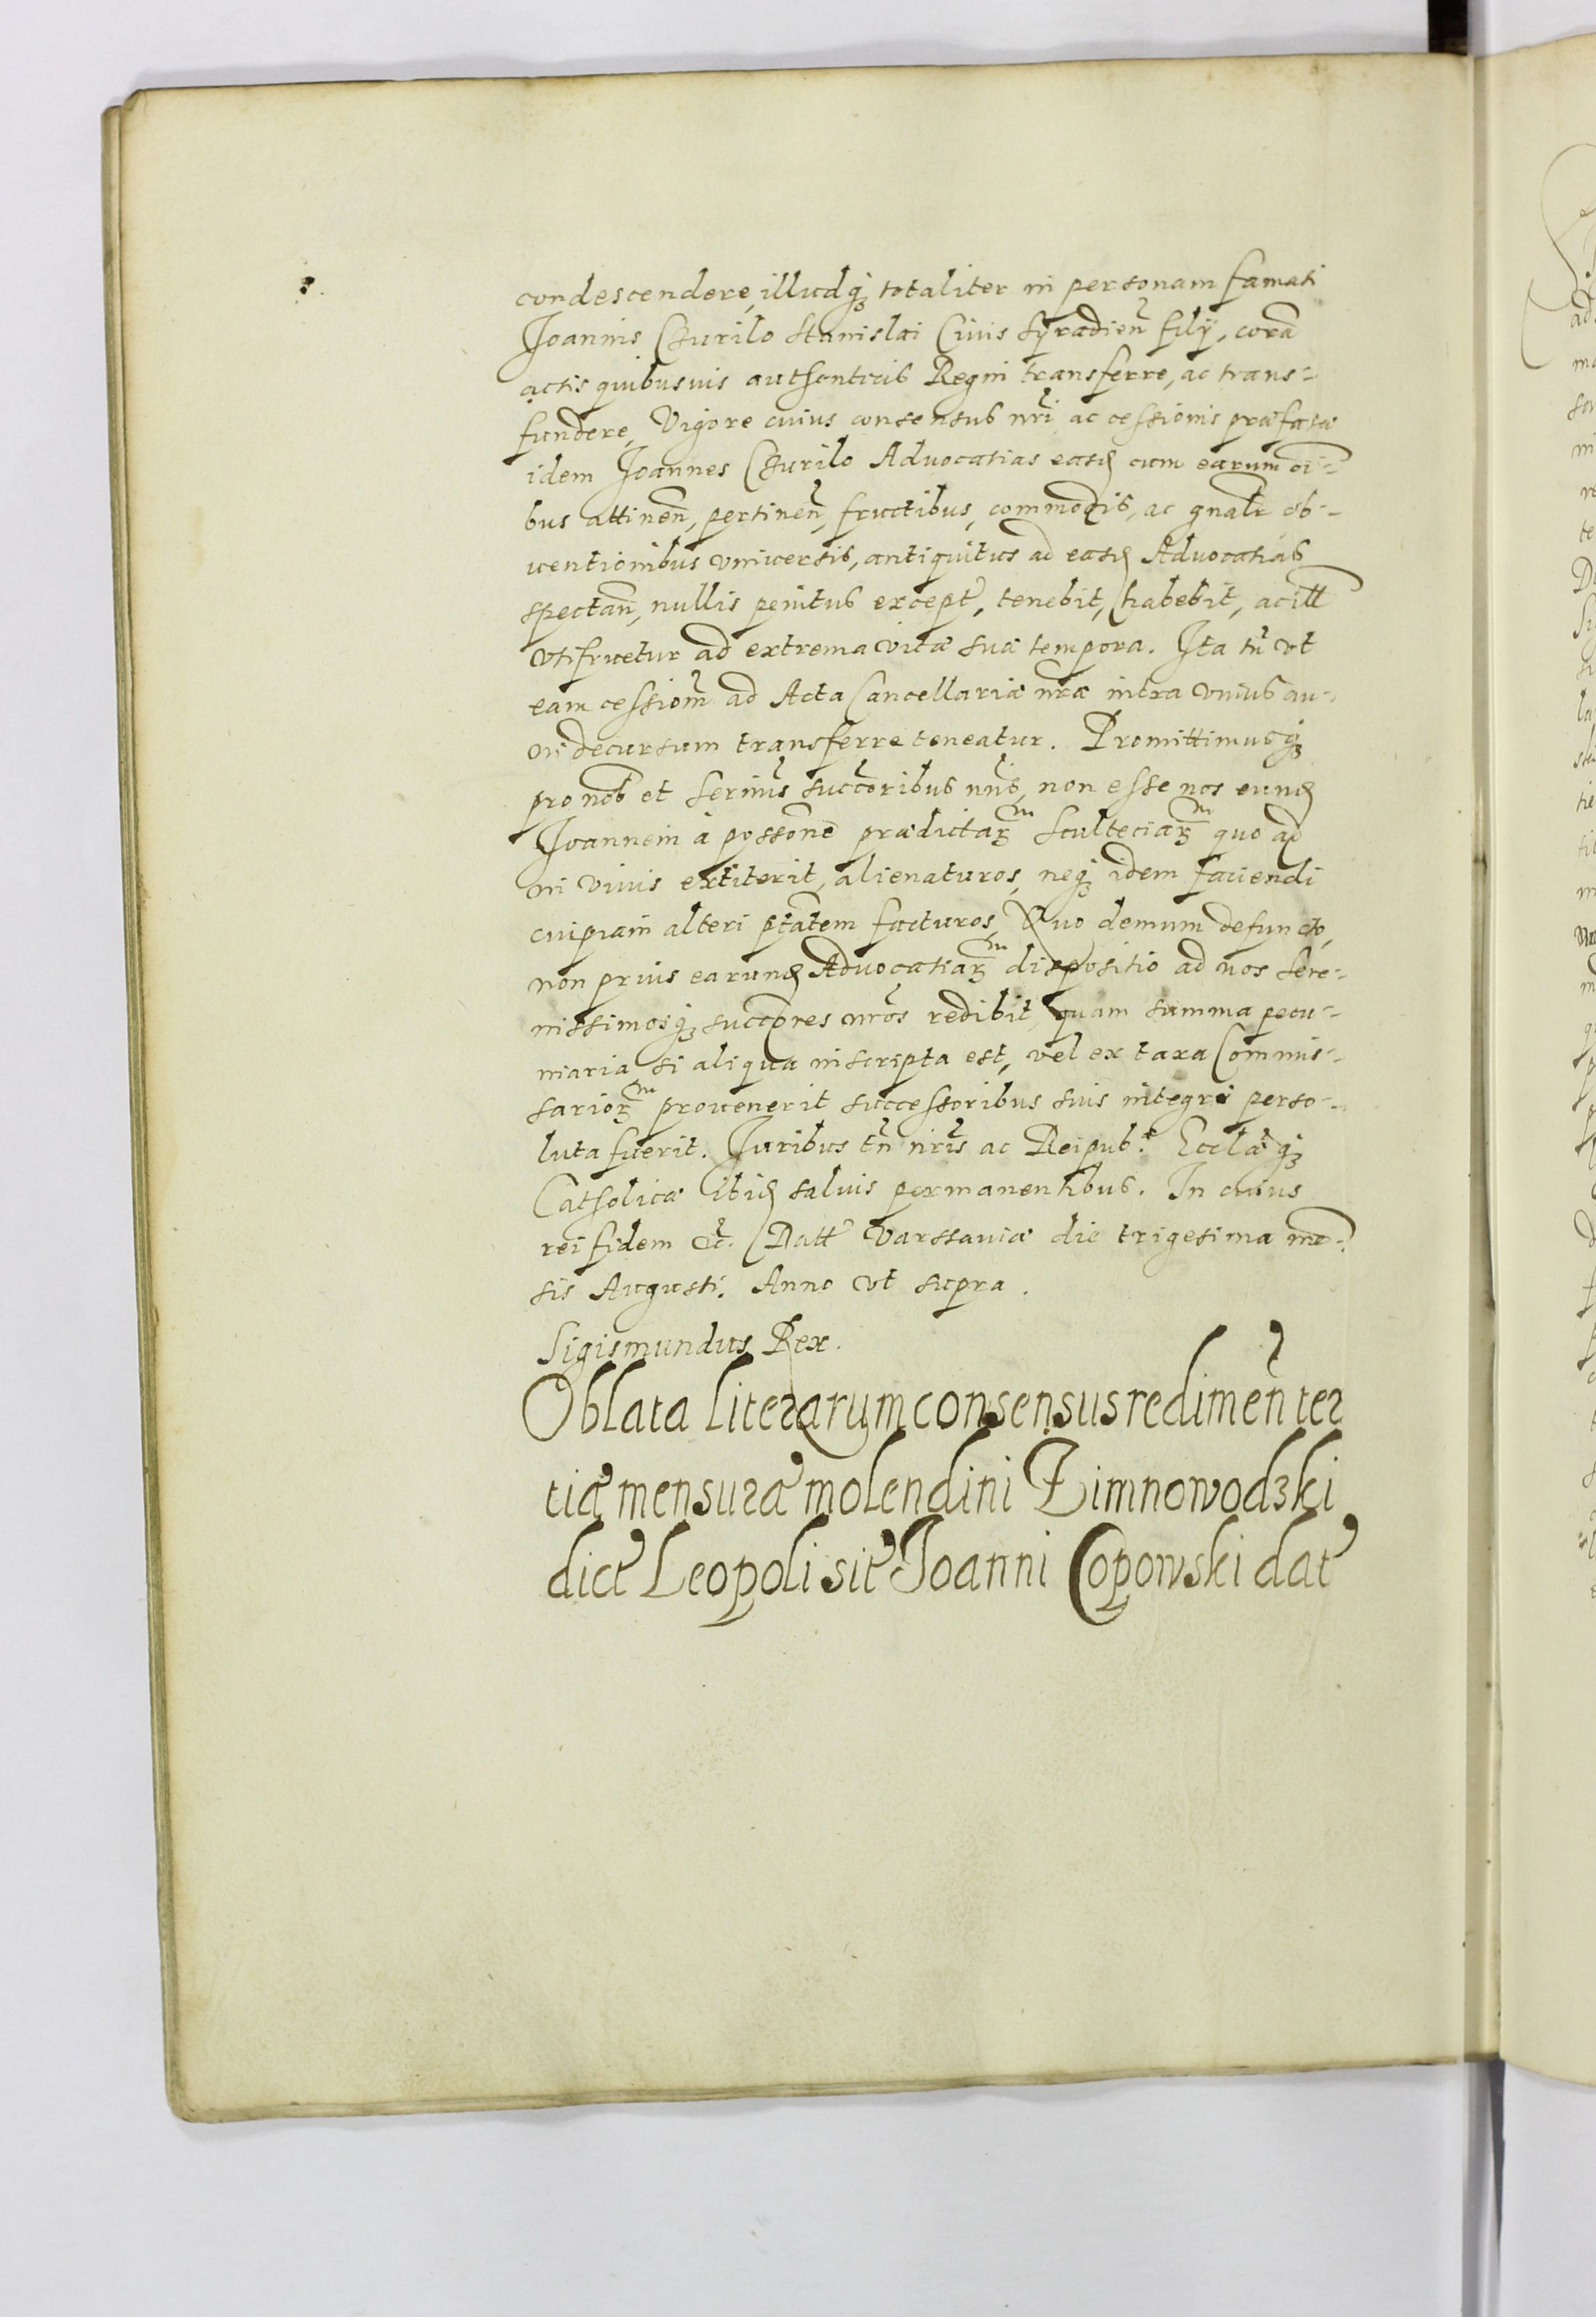 condescendere, illudq́ꝫ totaliter in personam famati
Joannis Czurilo Stanislai Civis Syradien̄ filÿ, corā
actis quibusuis authenticis Regni transferre, ac trans=
fundere, Vigore cuius consensus nr̄i ac cessionis præfatæ
idem Joannes Czurilo Advocatias easd̨ cum earum oī=
bus attinen̄, pertinen̄, fructibus, commodis, ac gnalr̄ ob=
uentionibus vniuersis, antiquitus ad easd̨ Advocatias
spectan̄, nullis penitus except̄, tenebit, habebit, ac ill̄
vtifruetur ad extrema vitæ suæ tempora. Ita tn̄ vt
eam cessionm̄ ad Acta Cancellariæ nr̄æ intra vnius an=
ni decursum transferre teneatur. Promittimusq́ꝫ
pro nob̄ et Sermīs succoribus nrīs, non esse nos eund̨
Joannem à possone prædictarꝫᵐ Scultetiarꝫᵐ quo ad
in viuis extiterit, alienaturos, neq́ꝫ idem faciendi
cuipiam alteri ptātem facturos, Quo demum defuncto,
non prius earund̨ Advocatiarꝫᵐ dispositio ad nos sere=
nissimosq́ꝫ succores nr̄os redibit, quam summa pecu=
niaria si aliqua inscripta est, vel ex taxa Commis=
sariorꝫᵐ prouenerit successoribus suis integrè perso=
luta fuerit. Juribus tn̄ nrīs ac Reipub: Ecclæq́ꝫ
Catholicæ ibid̨ saluis permanentibus. In cuius
rei fidem &c̄. Datt̄ Varssauiæ die trigesima mē=
sis Augusti. Anno vt supra.
Sigismundus Rex.
Oblata literarum consensus redimen̄ ter
tiæ mensuræ molendini Zimnowodzki
dict̄ Leopoli sit̄ Joanni Copowski dat̄